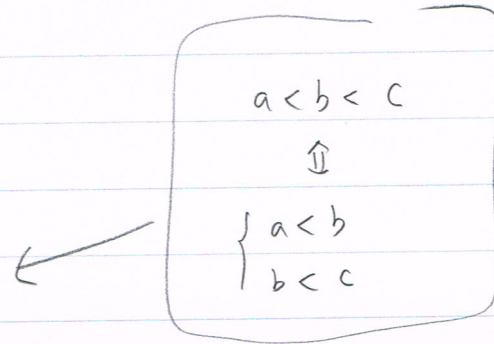 a < b < c
⇕
{ a < b
b < c